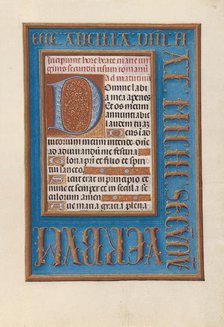 ECCE ANCILLA DNI FI
AT MICHI SECVNDV
VERBVM
Incipiunt hore beate marie vir
ginis secundum usum romanum
Domine labi
a mea aperies
Et os meum
annuntiabit
laudem tuam
Deus in ad
iutorium meum intende
Domine
ad adiuvandum me festina
Gloria patri et filio et spiri
tui sancto
Sicut erat in principio et
nunc et semper et in secula se
culorum amen
Ave maria gratia plena